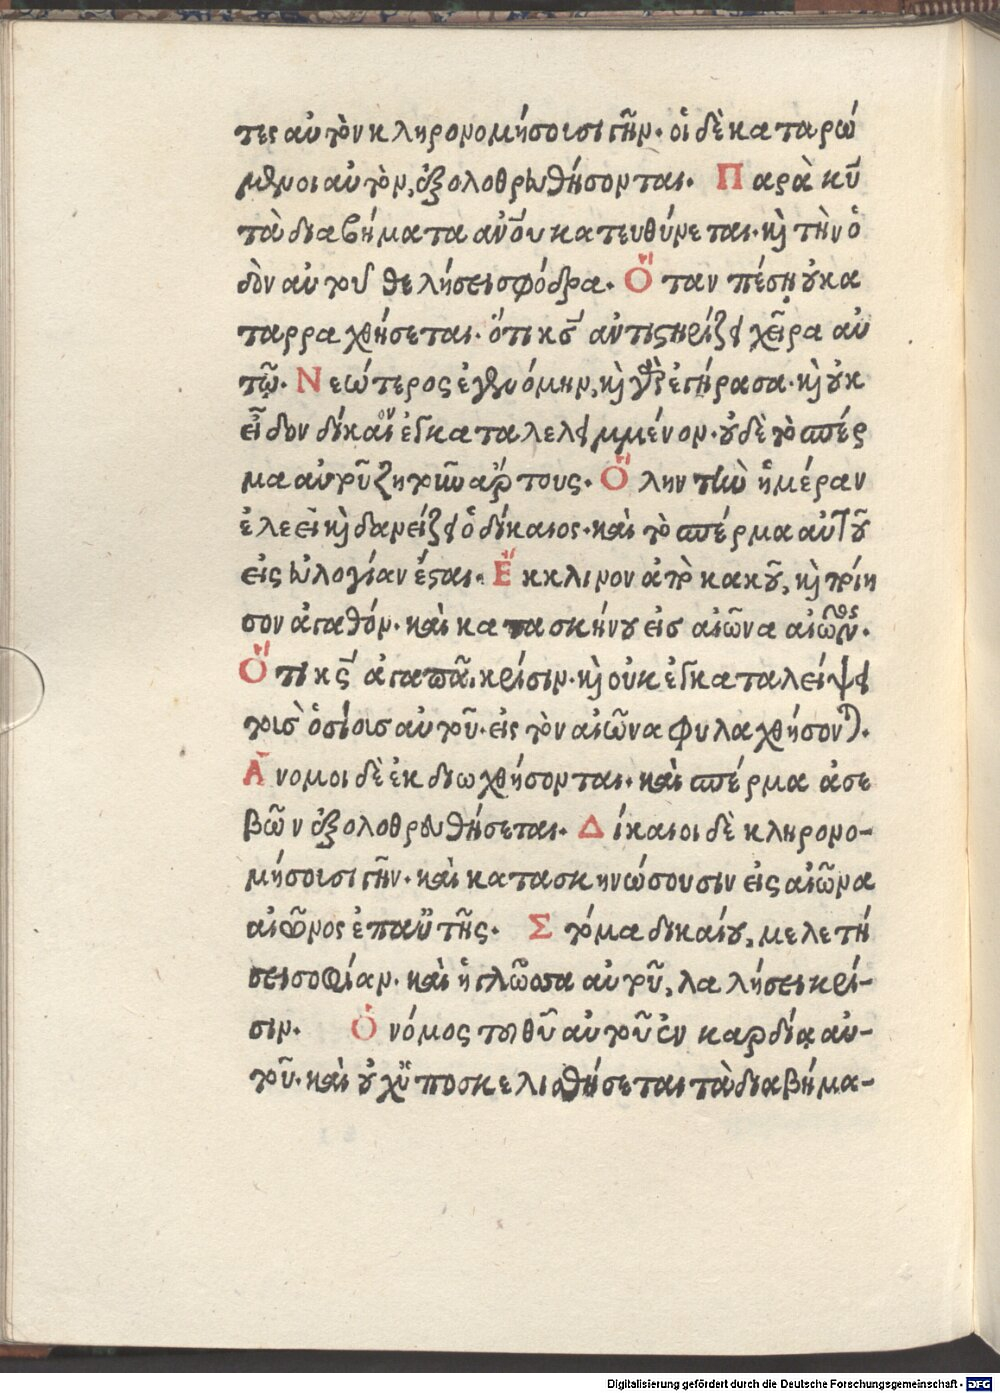 τες αὐτὸν κληρονομήσουσι γῆν. οἱ δὲ καταρώ
μενοι αὐτὸν, ἐξολοθρευθήσονται. Παρὰ κῡ
τὰ διαβήματα ἀνο̅υ κατευθύνεται. κὶ τὴν ὁ
δὸν αὐτοῦ θελήσει σφόδρα. Ὅταν πέσῃ οὐ κα
ταρραχθήσεται. ὅτι κς̅ ἀντιστηρίζει χεῖρα αὐ
τοῦ. Νεώτερος ἐγενόμην, κὶ γὰρ ἐγήρασα. κὶ οὐκ
εἶδον δίκαιον ἐγκαταλελειμμένον. οὐδὲ τὸ σπέρ
μα αὐτοῦ ζητοῦν ἄρτους. Ὅλην τὴν ἡμέραν
ἐλεεῖ κὶ δανείζει ὁ δίκαιος. καὶ τὸ σπέρμα αὐτοῦ
εἰς εὐλογίαν ἔσται. Ἔκκλινον ἀπὸ κακοῦ, κὶ ποίη
σον ἀγαθόν. καὶ κατασκήνου εἰσ αἰῶνα αἰῶνος.
Ὅτι κς̅ ἀγαπᾶ κρίσιν. κὶ οὐκ ἐγκαταλείψει
τοὺσ ὁσίους αὐτοῦ. εἰς τὸν αἰῶνα φυλαχθήσονται.
Ἄνομοι δὲ ἐκδιωχθήσονται. καὶ σπέρμα ἀσε
βῶν ἐξολοθρευθήσεται. Δίκαιοι δὲ κληρονο-
μήσουσι γῆν. καὶ κατασκηνώσουσιν εἰς αἰῶνα
αἰῶνος ἐπ αὐτῆς. Στόμα δικαίου, μελετή
σει σοφίαν. καὶ ἡ γλῶσσα αὐτοῦ, λαλήσει κρί-
σιν. Ὁ νόμος του θῡ αὐτοῦ ἐν καρδίᾳ αὐ-
τοῦ. καὶ οὐχ ὑποσκελισθήσεται τὰ διαβήμα-
Digitalisierung gefördert durch die Deutsche Forschungsgemeinschaft - DFG